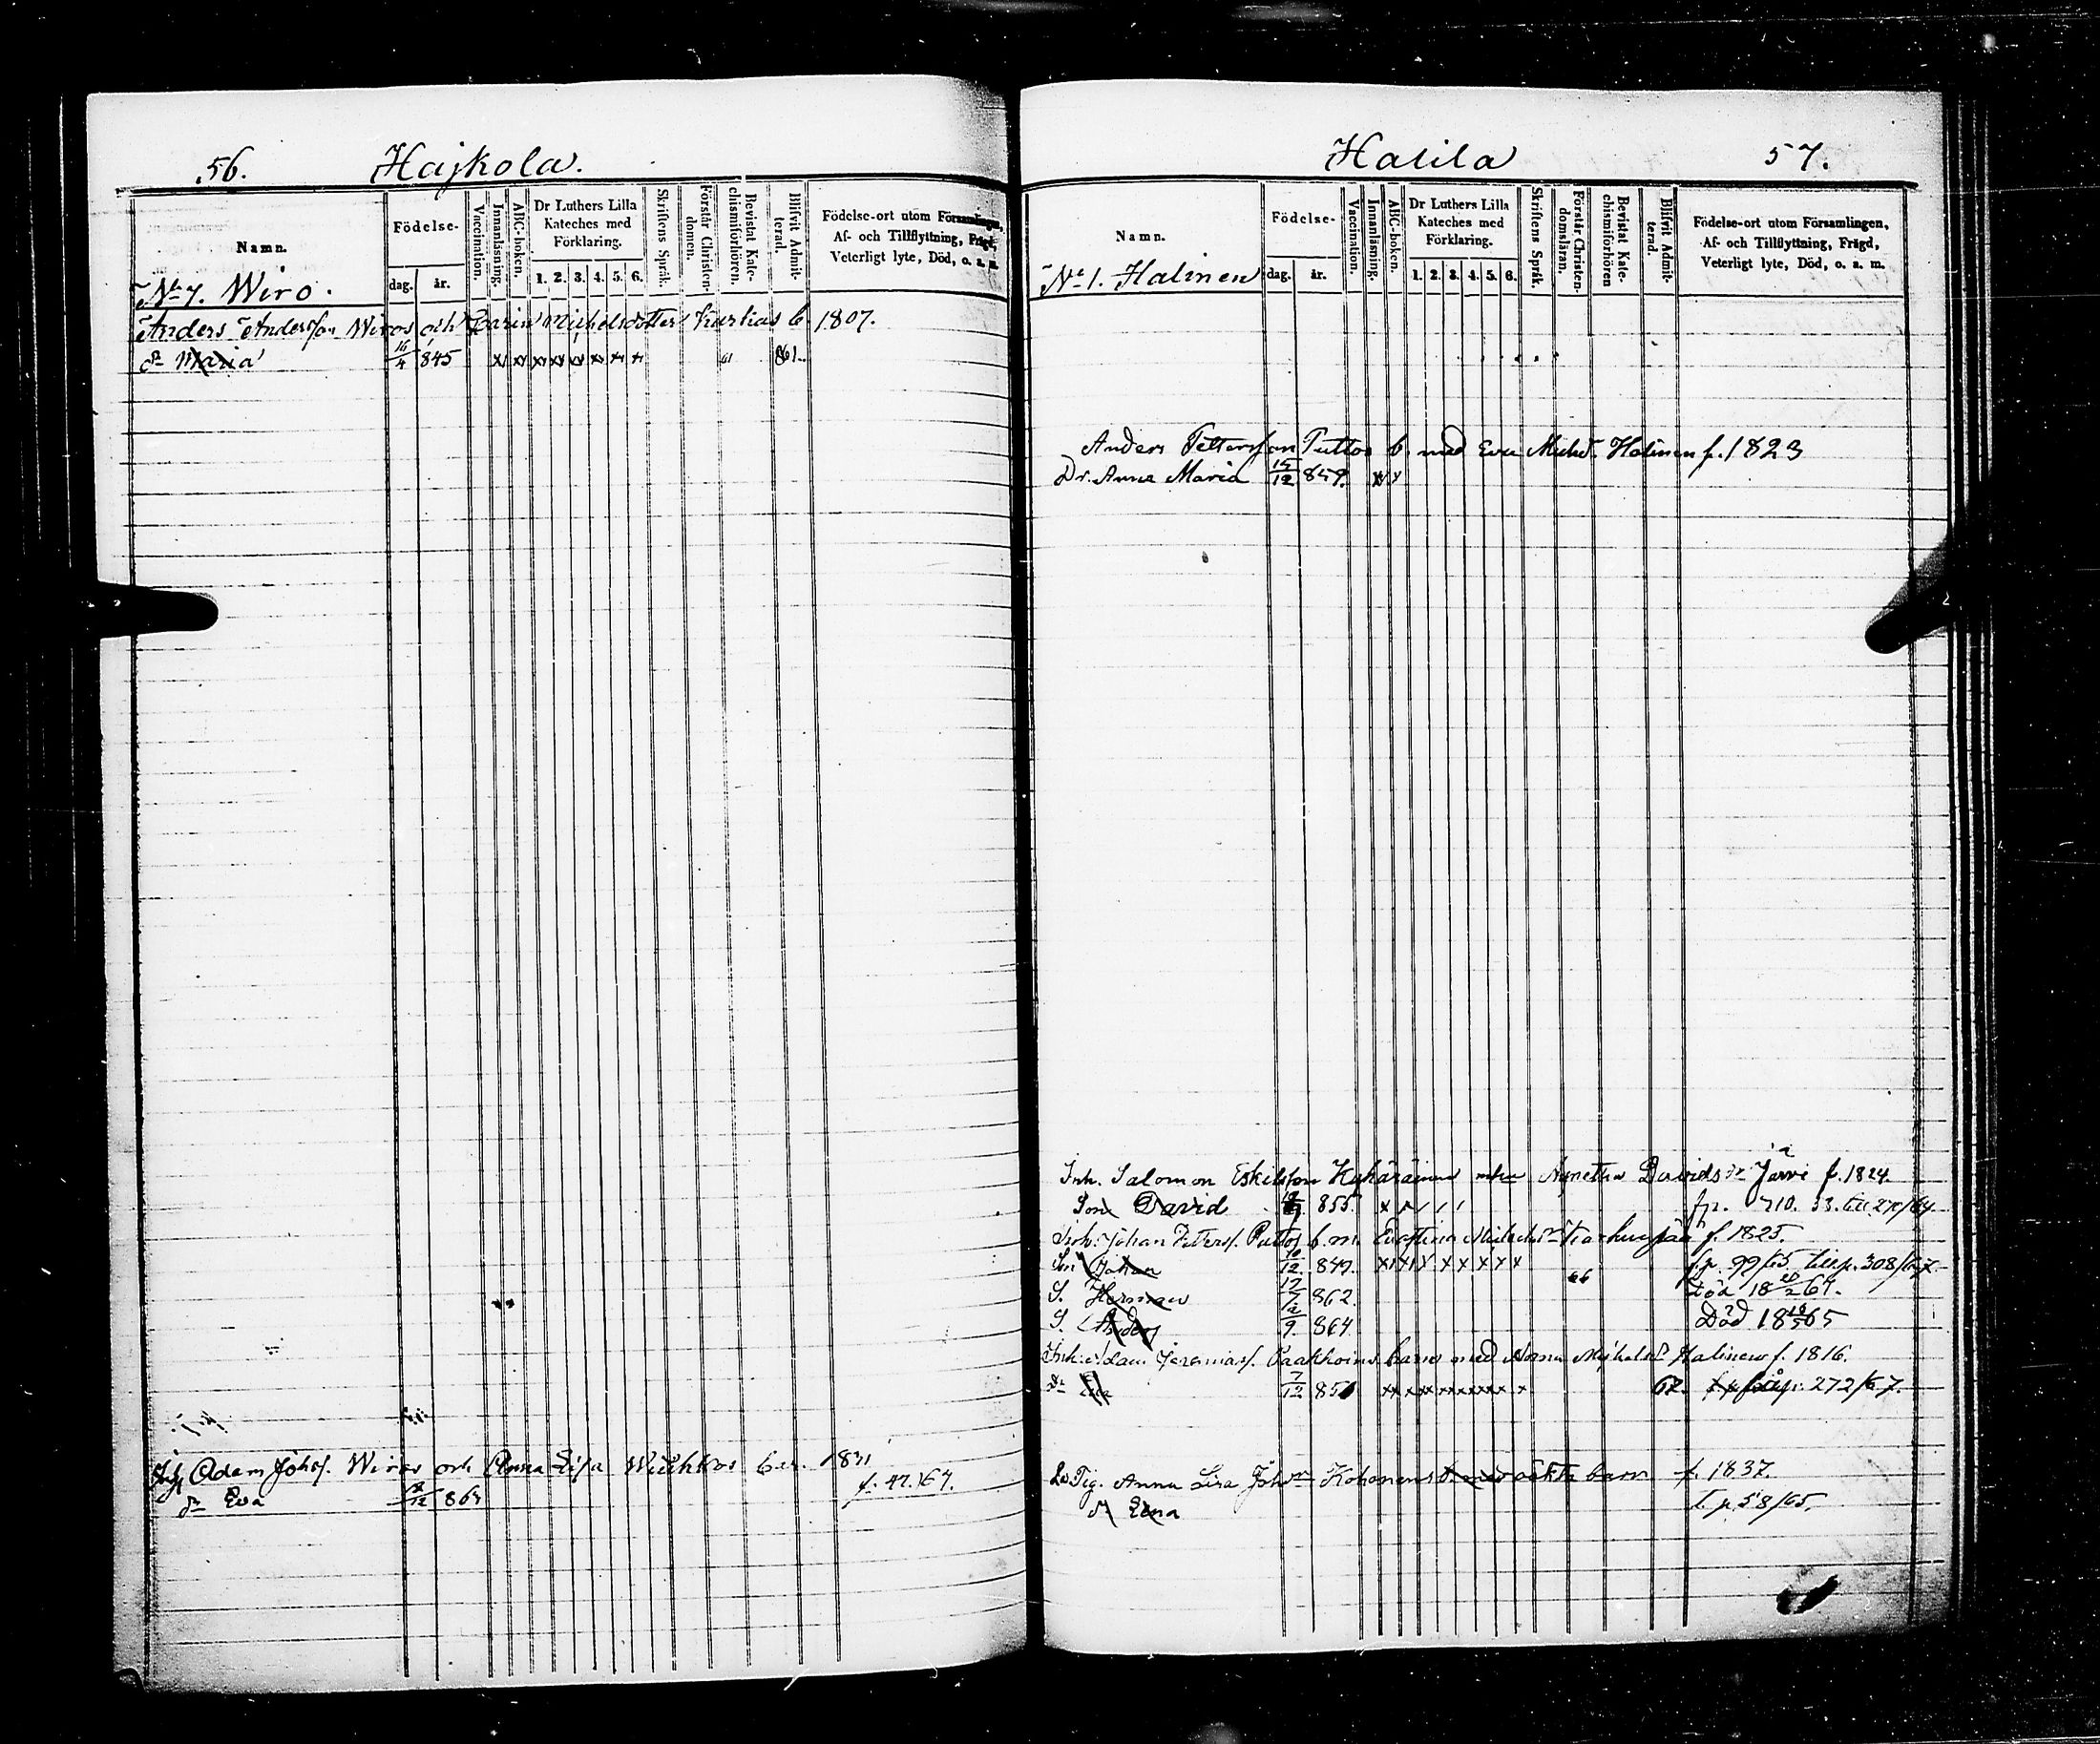 56. Hajkola.
Namn.
Födelse-
dag. år.
Vaccination.
Innanläsning.
ABC-boken.
Dr Luthers Lilla Kateches med Förklaring.
1. 2. 3. 4. 5. 6.
Skriftens Språk.
Förstår Christendomen.
Bevistat Katechismiförhören.
Blifvit Admitterad.
Födelse-ort utom Församlingen,
Af- och Tillflyttning, Frägd,
Veterligt lyte, Död, o. a. m.
No 7. Wiro.
Anders Andersson Wiros och Karin Michelsdotter Kurkias b. 1807.
dr Maria 16/4 845 61 861.
Adam Johs. Wiros och Anna Lisa bar. 1831
dr Eva 12 86 f. 47./67.
Halila 57.
Namn.
Födelse-
dag. år.
Vaccination.
Innanläsning.
ABC-boken.
Dr Luthers Lilla Kateches med Förklaring.
1. 2. 3. 4. 5. 6.
Skriftens Språk.
Förstår Christendomsläran.
Bevistat Katechismiförhören
Blifvit Admitterad.
Födelse-ort utom Församlingen,
Af- och Tillflyttning, Frägd,
Veterligt lyte, Död, o. a. m.
No 1. Halinen
Anders Pettersson Puttos b. med Eva Michd. Halinen f. 1823
Dr. Anna Maria 15/12 859. x x
Inh. Salomon Eskilsson Agnetha Davids dr Järvi f. 1824.
Son David 855. x fr. 710.
Inh. Johan Petters. Puttos b. m. f. 1825.
Son Johan 10/12 849. 66 f.p. 99/65. till p. 308/67.
S. Herman 17/7 862. död 18 64.
S. Anders 12/9. 864 Död 18 65
Inh. Jeremias. Paakkoins barn med Anna Mickelsdr Halinen f. 1816.
Dr 7/12 85 67. 272/67.
Lö Pig. Anna Lisa Kohonens oäkta barn f. 1837.
dr Elena t. p. 58/65.